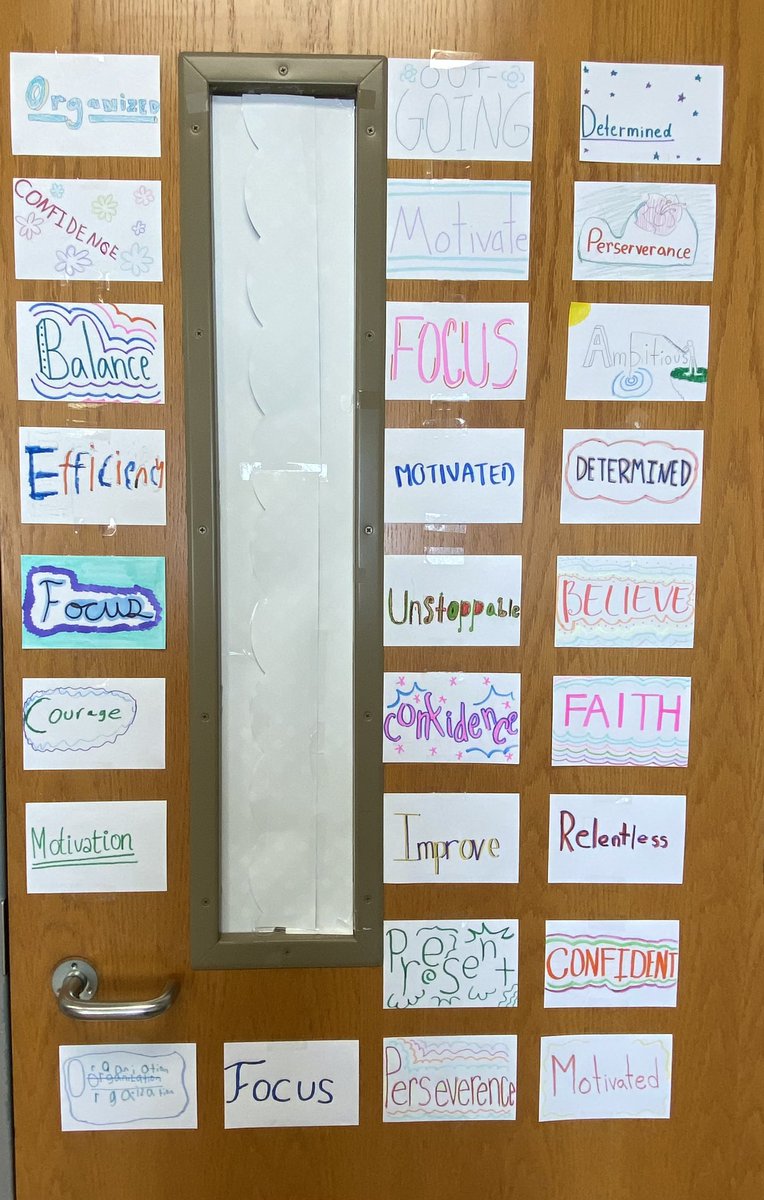 Organized
OUT-
GOING
Determined
CONFIDENCE
Motivate
Perserverance
Balance
FOCUS
Ambitious
Efficiency
MOTIVATED
DETERMINED
Focus
Unstoppable
BELIEVE
Courage
Confidence
FAITH
Motivation
Improve
Relentless
Present
CONFIDENT
Organization
Focus
Perseverence
Motivated